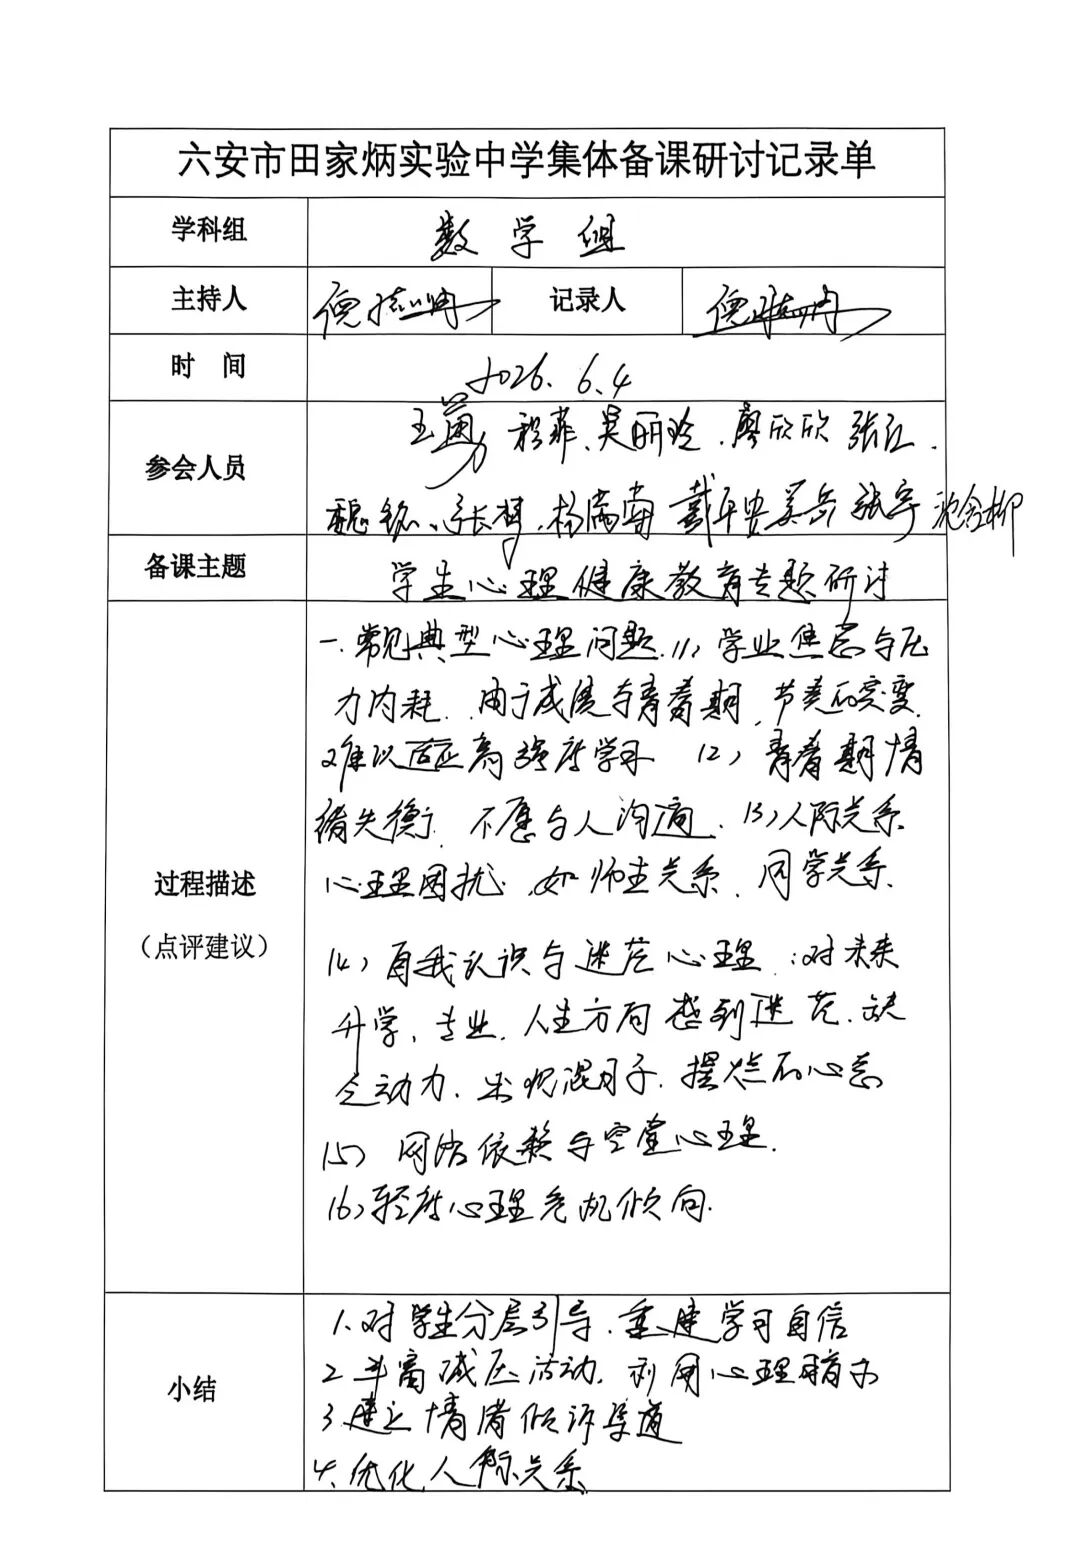 六安市田家炳实验中学集体备课研讨记录单
学科组 数学组
主持人 记录人
时 间 2026.6.4
王勇 程菲、吴丽玲、廖欣欣 张江、
参会人员
魏 张 杨 戴 姜兵 张宇
备课主题 学生心理健康教育专题研讨
一.常见典型心理问题.(1)、学业焦虑与压
力内耗. 由于成绩与青春期、节奏的突变.
难以适应高强度学习 (2)青春期情
绪失衡、不愿与人沟通. (3)人际关系
心理困扰、如师生关系、同学关系.
过程描述
(点评建议)
(4)自我认识与迷茫心理:对未来
升学、专业、人生方向感到迷茫、缺
乏动力.出现混日子.摆烂的心态
(5)网络依赖与空虚心理.
(6)轻度心理危机倾向.
1.对学生分层引导、重建学习自信
2.丰富减压活动.利用心理
小结
3.建立情绪倾诉渠道
4.优化人际关系